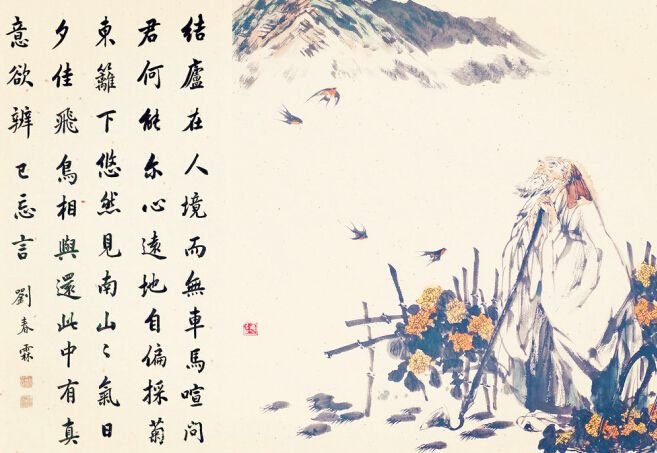 結廬在人境而無車馬喧問
君何能尔心遠地自偏採菊
東籬下悠然見南山〻氣日
夕佳飛鳥相與還此中有真
意欲辨已忘言
劉春霖